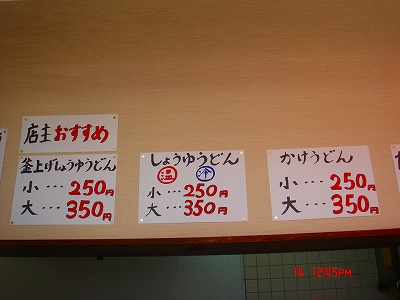 店主おすすめ
釜上げしょうゆうどん
小…250円
大…350円
しょうゆうどん
温 冷
小…250円
大…350円
かけうどん
小…250円
大…350円
14 12:45PM